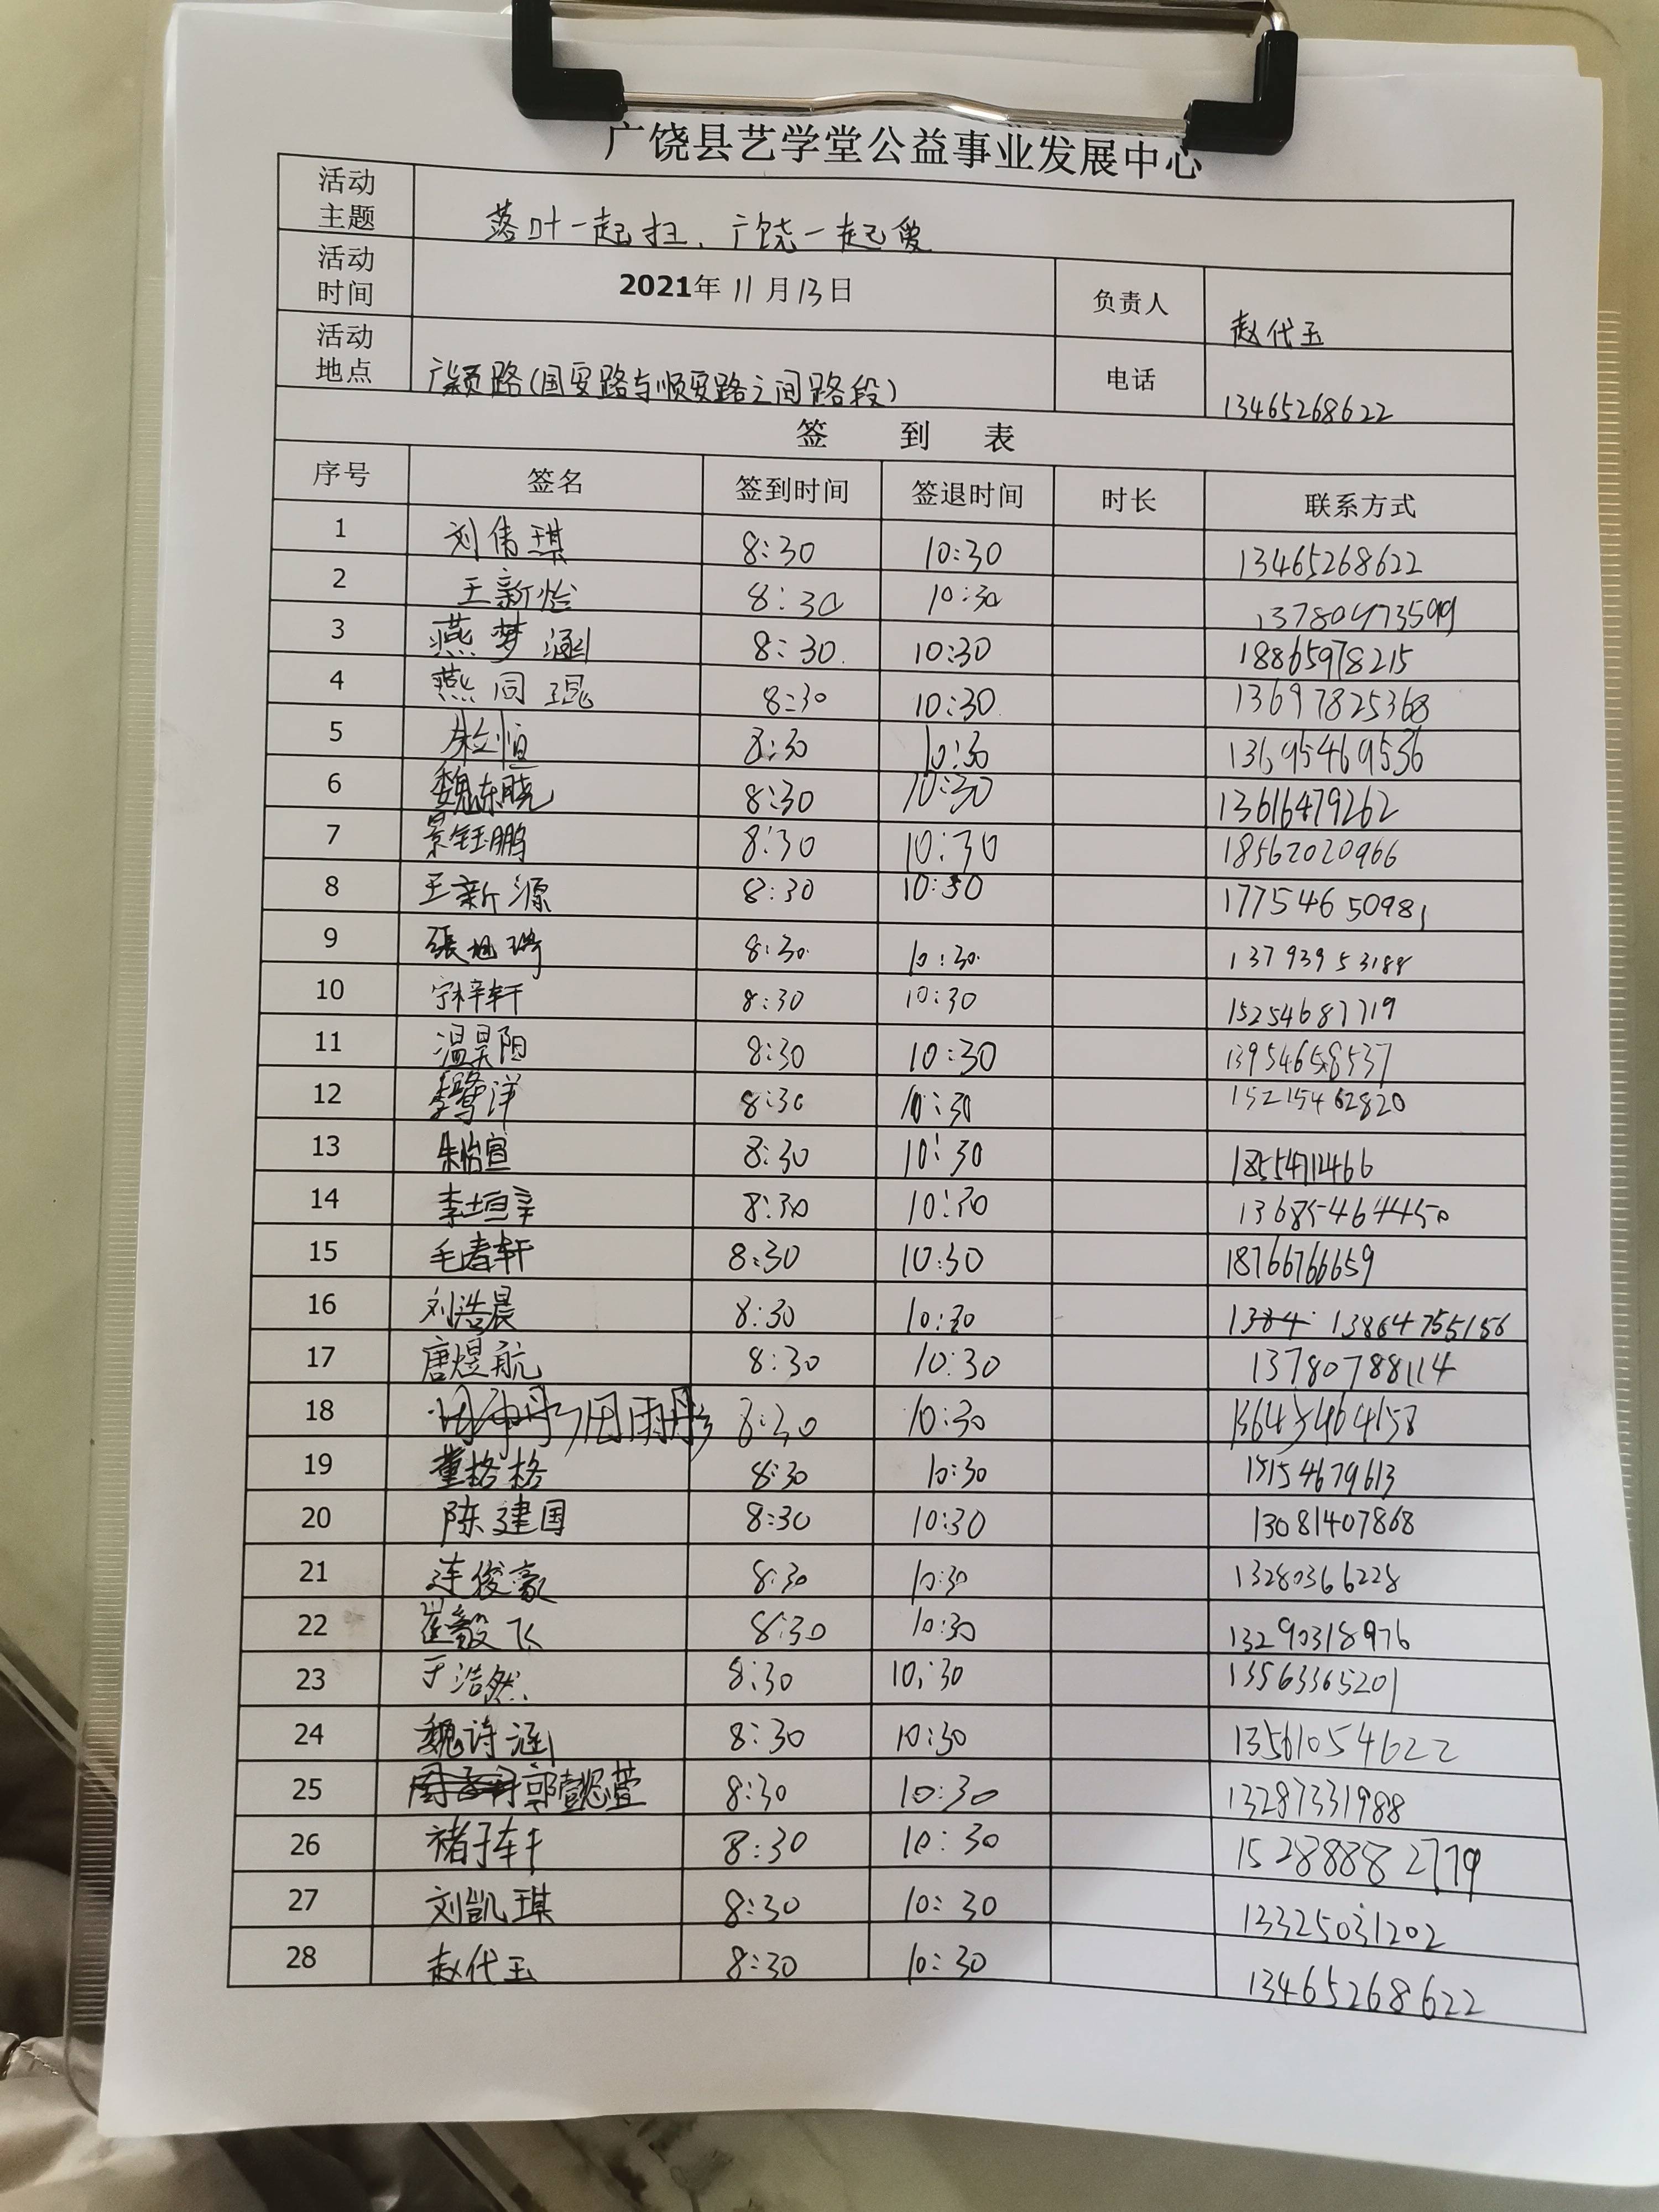 广饶县艺学堂公益事业发展中心
活动主题 落叶一起扫、广饶一起爱
活动时间 2021年11月13日 负责人 赵代玉
活动地点 广颖路(国安路与顺安路之间路段) 电话 13465268622
签 到 表
序号 签名 签到时间 签退时间 时长 联系方式
1 刘倩琪 8:30 10:30 13465268622
2 王新怡 8:30 10:30 13780473599
3 燕梦涵 8:30 10:30 18865978215
4 燕同琨 8:30 10:30 13697825368
5 8:30 10:30 13695469536
6 魏东晓 8:30 10:30 13616479262
7 景钰鹏 8:30 10:30 18562020966
8 王新源 8:30 10:30 17754650981
9 张旭琦 8:30 10:30 13793953188
10 宁梓轩 8:30 10:30 15254687719
11 温昊阳 8:30 10:30 13954658537
12 李鹭洋 8:30 10:30 15215462820
13 朱怡宣 8:30 10:30
14 李垣辛 8:30 10:30 13685464450
15 毛孝轩 8:30 10:30 18766766659
16 刘浩晨 8:30 10:30 1384 13864755156
17 唐煜航 8:30 10:30 13780788114
18 周雨彤 8:30 10:30 13645464158
19 董格格 8:30 10:30 15154679613
20 陈建国 8:30 10:30 13081407868
21 连俊豪 8:30 10:30 13280366228
22 崔毅飞 8:30 10:30 13290318976
23 于浩然 8:30 10:30 13563365201
24 魏诗涵 8:30 10:30 13561054622
25 郭懿萱 8:30 10:30 13287331988
26 褚子轩 8:30 10:30 15288882779
27 刘凯琪 8:30 10:30 13325031202
28 赵代玉 8:30 10:30 13465268622